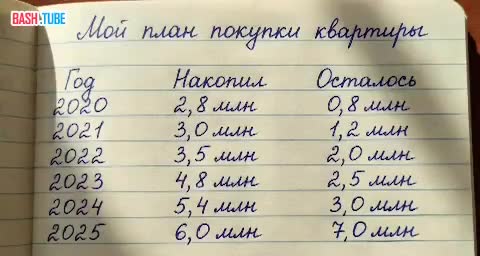 BASH TUBE
Мой план покупки квартиры
Год Накопил Осталось
2020 2,8 млн 0,8 млн
2021 3,0 млн 1,2 млн
2022 3,5 млн 2,0 млн
2023 4,8 млн 2,5 млн
2024 5,4 млн 3,0 млн
2025 6,0 млн 7,0 млн